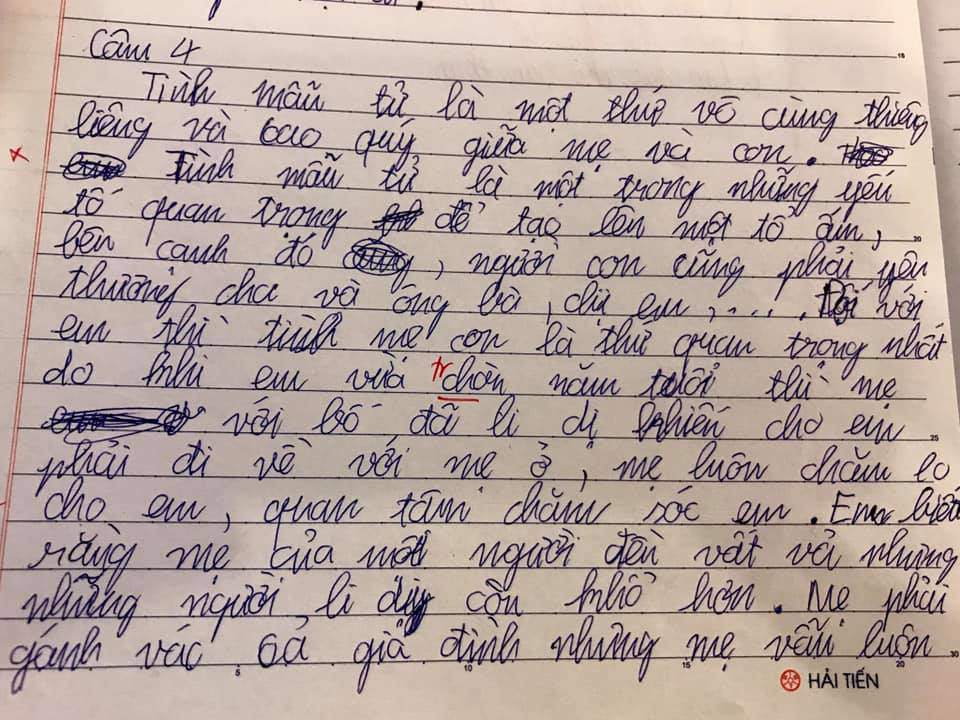 Câu 4
Tình mẫu tử là một thứ vô cùng thiêng
liêng và bao quý giữa mẹ và con.
Tình mẫu tử là một trong những yếu
tố quan trong để tạo lên một tổ ấm,
bên cạnh đó, người con cũng phải yên
thương cha và ông bà, chị em, .... Đối với
em thì tình mẹ con là thứ quan trọng nhất
do khi em vừa chòn năm tuổi thì mẹ
tr
với bố đã li dị khiến cho em
phải đi về với mẹ ở, mẹ luôn chăm lo
cho em, quan tâm chăm sóc em. Em biết
rằng mẹ của một người đều vất vả nhưng
những người li dị còn khổ hơn. Mẹ phải
gánh vác cả gia đình nhưng mẹ vẫn luôn
HẢI TIẾN